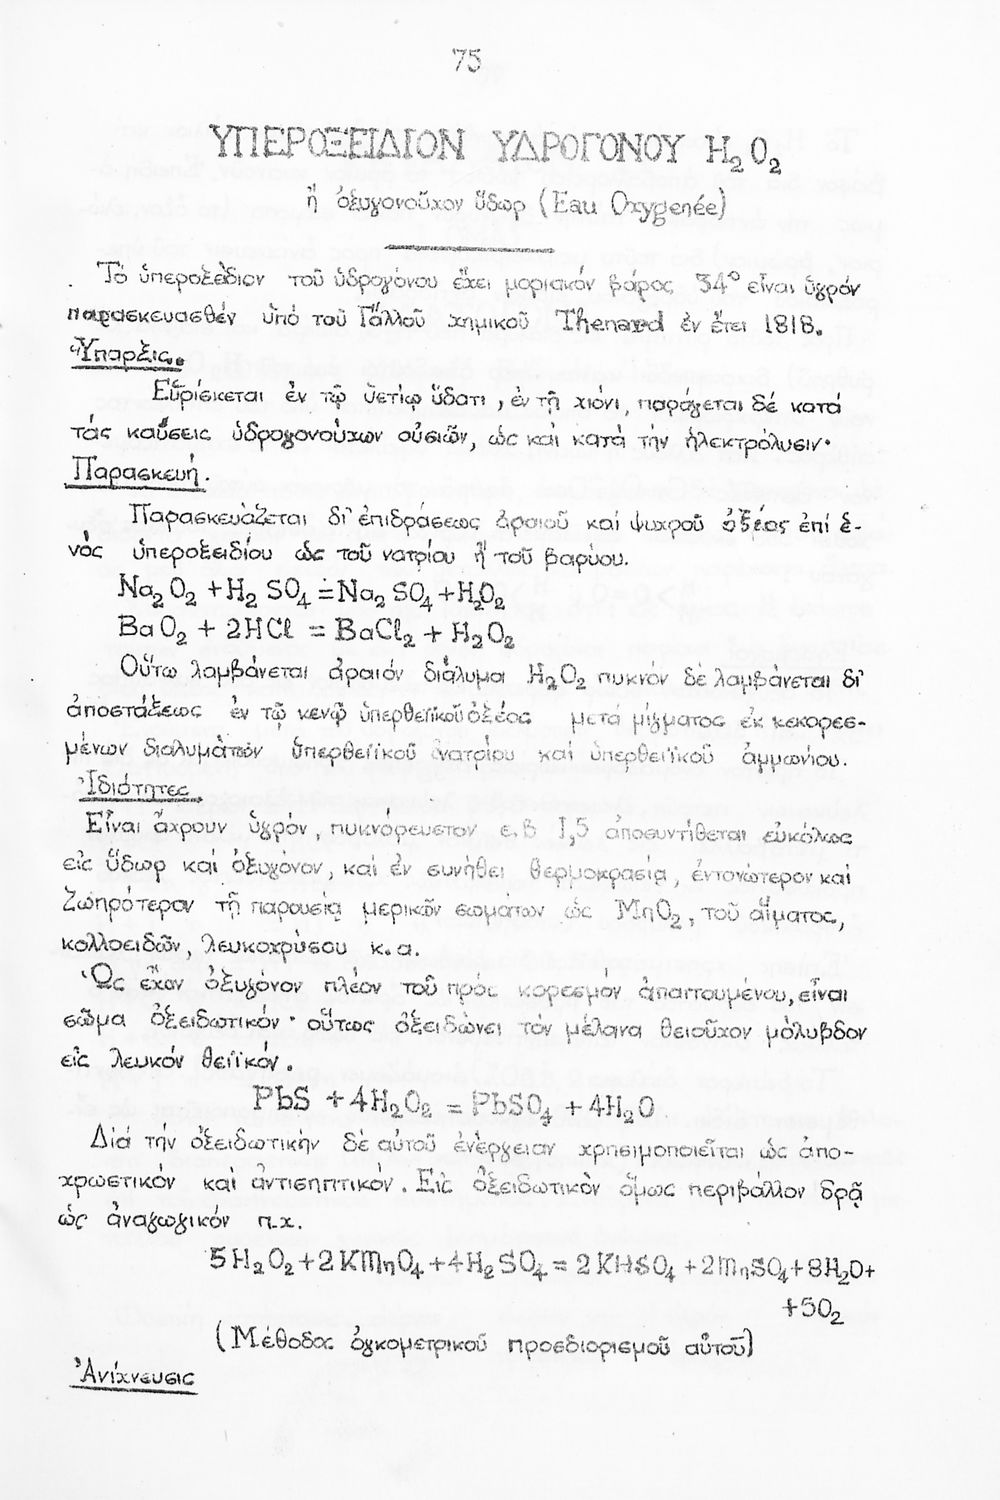 75
ΥΠΕΡΟΞΕΙΔΙΟΝ ΥΔΡΟΓΟΝΟΥ H₂O₂
ἤ ὀξυγονοῦχον ὕδωρ (Eau Oxygenée)
Τό ὑπεροξείδιον τοῦ ὑδρογόνου ἔχει μοριακόν βάρος 34° εἶναι ὑγρόν
παρασκευασθέν ὑπό τοῦ Γάλλου χημικοῦ Thenard ἐν ἔτει 1818.
Ὕπαρξις.
Εὑρίσκεται ἐν τῷ ὑετίῳ ὕδατι, ἐν τῇ χιόνι, παράγεται δέ κατά
τάς καύσεις ὑδρογονούχων οὐσιῶν, ὡς καί κατά τήν ἠλεκτρόλυσιν·
Παρασκευή.
Παρασκευάζεται δι' ἐπιδράσεως ἀραιοῦ καί ψυχροῦ ὀξέος ἐπί ἑ-
νός ὑπεροξειδίου ὡς τοῦ νατρίου ἤ τοῦ βαρύου.
Na₂O₂ + H₂SO₄ = Na₂SO₄ + H₂O₂
BaO₂ + 2HCl = BaCl₂ + H₂O₂
Οὕτω λαμβάνεται ἀραιόν διάλυμα H₂O₂ πυκνόν δέ λαμβάνεται δι'
ἀποστάξεως ἐν τῷ κενῷ ὑπερθειϊκοῦ ὀξέος μετά μίγματος ἐκ κεκορεσ-
μένων διαλυμάτων ὑπερθειϊκοῦ νατρίου καί ὑπερθειϊκοῦ ἀμμωνίου.
Ἰδιότητες.
Εἶναι ἄχρουν ὑγρόν, πυκνόρευστον ε.β 1,5 ἀποσυντίθεται εὐκόλως
εἰς ὕδωρ καί ὀξυγόνον, καί ἐν συνήθει θερμοκρασίᾳ, ἐντονώτερον καί
ζωηρότερον τῇ παρουσίᾳ μερικῶν σωμάτων ὡς MnO₂, τοῦ αἵματος,
κολλοειδῶν, λευκοχρύσου κ.α.
Ὡς ἔχον ὀξυγόνον πλέον τοῦ πρός κορεσμόν ἀπαιτουμένου, εἶναι
σῶμα ὀξειδωτικόν· οὕτως ὀξειδώνει τόν μέλανα θειοῦχον μόλυβδον
εἰς λευκόν θειϊκόν.
PbS + 4H₂O₂ = PbSO₄ + 4H₂O
Διά τήν ὀξειδωτικήν δε αὐτοῦ ἐνέργειαν χρησιμοποιεῖται ὡς ἀπο-
χρωστικόν καί ἀντισηπτικόν. Εἰς ὀξειδωτικόν ὅμως περιβάλλον δρᾷ
ὡς ἀναγωγικόν π.χ.
5H₂O₂ + 2KMnO₄ + 4H₂SO₄ = 2KHSO₄ + 2MnSO₄ + 8H₂O +
+5O₂
(Μέθοδος ὀγκομετρικοῦ προσδιορισμοῦ αὐτοῦ)
Ἀνίχνευσις